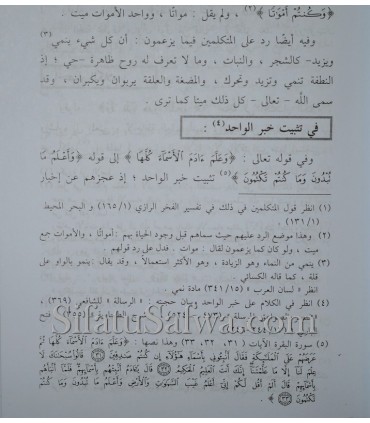 ﴿وَكُنتُمْ أَمْوَاتًا﴾(٢) ، ولم يقل : مواتًا ، وواحد الأموات ميت .
وفيه أيضًا رد على المتكلمين فيما يزعمون : أن كل شيء ينمي(٣)
ويزيد- كالشجر ، والنبات ، وما لا تعرف له روح ظاهرة -حي ؛ إذ
النطفة تنمي وتزيد وتحرك ، والمضغة والعلقة يربوان ويكبران ، وقد
سمى الله - تعالى - كل ذلك ميتا كما ترى .
في تثبيت خبر الواحد(٤) :
وفي قوله تعالى : ﴿وَعَلَّمَ ءَادَمَ الْأَسْمَآءَ كُلَّهَا﴾ إلى قوله ﴿وَأَعْلَمُ مَا
تُبْدُونَ وَمَا كُنتُمْ تَكْتُمُونَ﴾(٥) تثبيت خبر الواحد ؛ إذ عجزهم عن إخبار
(١) انظر قول المتكلمين في ذلك في تفسير الفخر الرازي (١/١٦٥) و البحر المحيط
(١/١٣١) .
(٢) وهذا موضع الرد عليهم حيث سماهم قبل وجود الحياة بهم :أمواتًا ، والأموات جمع
ميت ، ولو كان كما يزعمون لقال : موات . فدل على رد قولهم .
(٣) ينمي من النماء وهو الزيادة ، وهو الأكثر استعمالاً ، وقد يقال :ينمو بالواو على
قلة ، كما قاله الكسائي .
انظر « لسان العرب » (١٥/٣٤١) مادة نمي
(٤) انظر في الكلام على خبر الواحد وبيان حجيته : « الرسالة » للشافعي (٣٦٩) ،
SilatuSalwa.com
(٥) سورة البقرة الآيات (٣١، ٣٢، ٣٣) وهذا نصها : ﴿وَعَلَّمَ ءَادَمَ الْأَسْمَآءَ كُلَّهَا ثُمَّ
عَرَضَهُمْ عَلَى الْمَلَـٰٓئِكَةِ فَقَالَ أَنۢبِـُٔونِي بِأَسْمَآءِ هَـٰٓؤُلَآءِ إِن كُنتُمْ صَـٰدِقِينَ ﴿٣١﴾ قَالُوا۟ سُبْحَـٰنَكَ لَا
عِلْمَ لَنَآ إِلَّا مَا عَلَّمْتَنَآ إِنَّكَ أَنتَ الْعَلِيمُ الْحَكِيمُ ﴿٣٢﴾ قَالَ يَـٰٓـَٔادَمُ أَنۢبِئْهُم بِأَسْمَآئِهِمْ فَلَمَّآ أَنۢبَأَهُم
بِأَسْمَآئِهِمْ قَالَ أَلَمْ أَقُل لَّكُمْ إِنِّيٓ أَعْلَمُ غَيْبَ السَّمَـٰوَٰتِ وَالْأَرْضِ وَأَعْلَمُ مَا تُبْدُونَ وَمَا كُنتُمْ
تَكْتُمُونَ ﴿٣٣﴾﴾